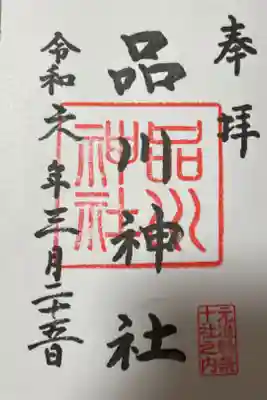 奉拝
品川神社
品川
神社
令和六年三月二十五日
十社之内